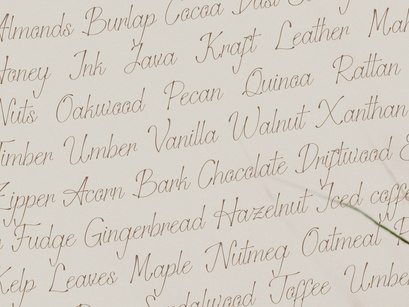 Almonds Burlap Cocoa Dust
Honey Ink Java Kraft Leather
Nuts Oakwood Pecan Quinoa Rattan
Timber Umber Vanilla Walnut Xanthan
Zipper Acorn Bark Chocolate Driftwood
Fudge Gingerbread Hazelnut Iced coffe
Kelp Leaves Maple Nutmeg Oatmeal
Sandalwood Toffee Umbe